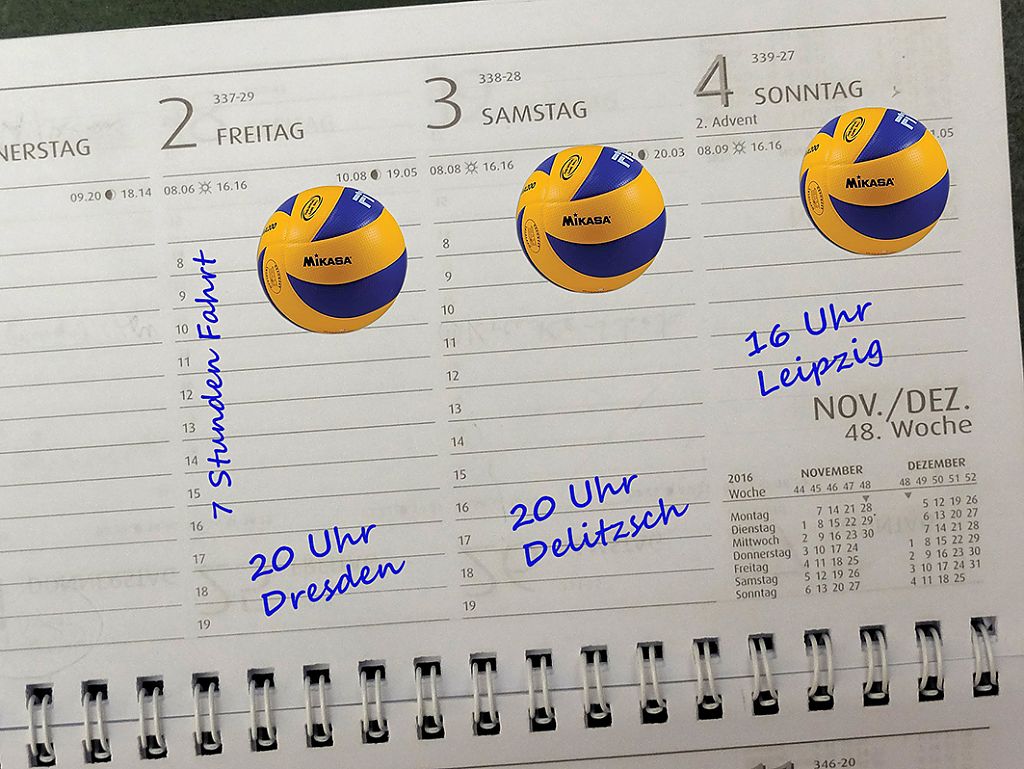 NERSTAG
09.20 18.14
2 337-29
FREITAG
08.06 16.16
10.08 19.05
MIKASA
8
9
10
11
12
13
14
15
16
17
18
19
7 Stunden Fahrt
20 Uhr
Dresden
3 338-28
SAMSTAG
08.08 16.16
20.03
MIKASA
8
9
10
11
12
13
14
15
16
17
18
19
20 Uhr
Delitzsch
4 339-27
SONNTAG
2. Advent
08.09 16.16
1.05
MIKASA
16 Uhr
Leipzig
NOV./DEZ.
48. Woche
2016 NOVEMBER DEZEMBER
Woche 44 45 46 47 48 48 49 50 51 52
Montag 7 14 21 28 5 12 19 26
Dienstag 1 8 15 22 29 6 13 20 27
Mittwoch 2 9 16 23 30 7 14 21 28
Donnerstag 3 10 17 24 1 8 15 22 29
Freitag 4 11 18 25 2 9 16 23 30
Samstag 5 12 19 26 3 10 17 24 31
Sonntag 6 13 20 27 4 11 18 25
346-20